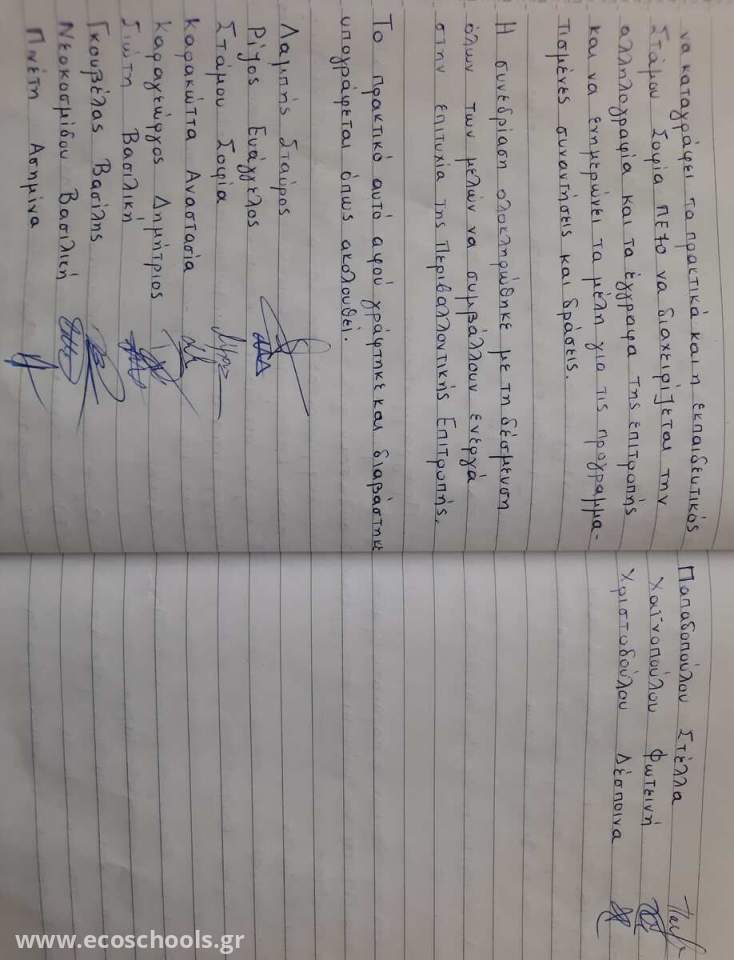 να καταγράφει τα πρακτικά και η εκπαιδευτικός
Στάμου Σοφία ΠΕ70 να διαχειρίζεται την
αλληλογραφία και τα έγγραφα της επιτροπής
και να ενημερώνει τα μέλη για τις προγραμμα-
τισμένες συναντήσεις και δράσεις.
Η συνεδρίαση ολοκληρώθηκε με τη δέσμευση
όλων των μελών να συμβάλλουν ενεργά
στην επιτυχία της Περιβαλλοντικής Επιτροπής.
Το πρακτικό αυτό αφού γράφτηκε και διαβάστηκε
υπογράφεται όπως ακολουθεί.
Λαμπής Σταύρος
Ρίζος Ευάγγελος
Στάμου Σοφία
Καρακώττα Αναστασία
Καραγεώργος Δημήτριος
Σιώτη Βασιλική
Γκουβέλας Βασίλης
Νεοκοσμίδου Βασιλική
Πνέτη Ασημίνα
Παπαδοπούλου Στέλλα
Χαϊνοπούλου Φωτεινή
Χριστοδούλου Δέσποινα
www.ecoschools.gr